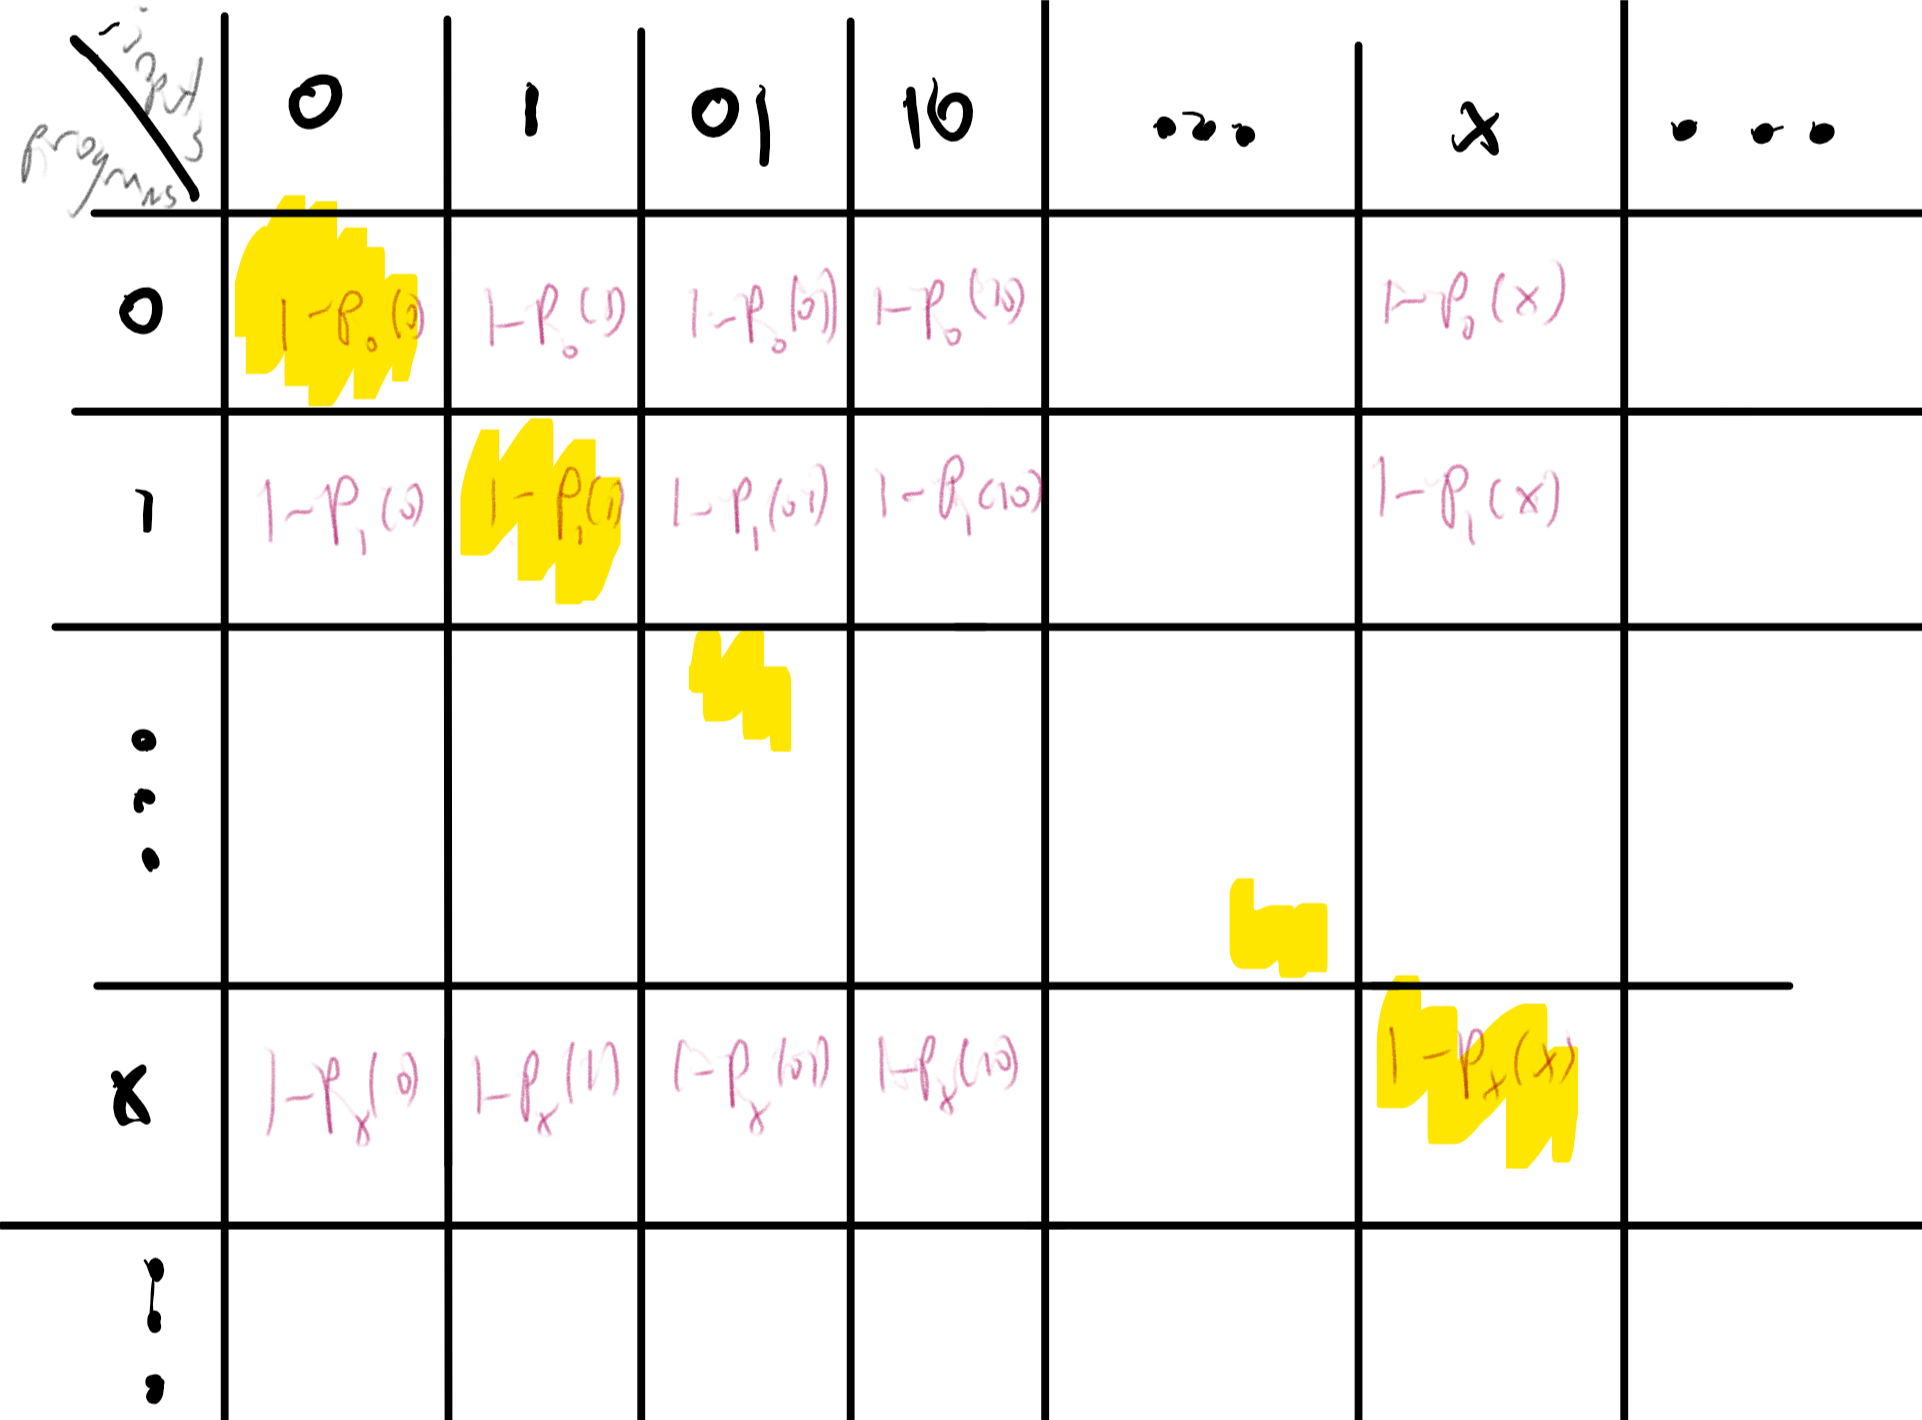 inputs
programs
0 1 01 10 ... x ...
0 1-P₀(0) 1-P₀(1) 1-P₀(01) 1-P₀(10) 1-P₀(x)
1 1-P₁(0) 1-P₁(1) 1-P₁(01) 1-P₁(10) 1-P₁(x)
⋮
x 1-Pₓ(0) 1-Pₓ(1) 1-Pₓ(01) 1-Pₓ(10) 1-Pₓ(x)
⋮